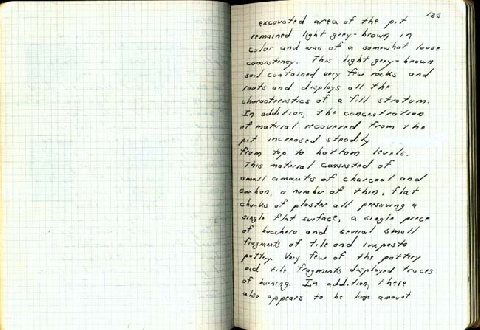 excavated area of the pit
remained light grey-brown in
color and was of a somewhat loose
consistency. This light grey-brown
soil contained very few rocks and
roots and displays all the
characteristics of a fill stratum.
In addition, the concentration
of material recovered from the
pit increased steadily
from top to bottom levels.
This material consisted of
small amounts of charcoal and
carbon, a number of thin, flat
chunks of plaster all preserving a
single flat surface, a single piece
of bucchero and several small
fragments of tile and impasto
pottery. Very few of the pottery
and tile fragments displayed traces
of burning. In addition, there
also appears to be amount